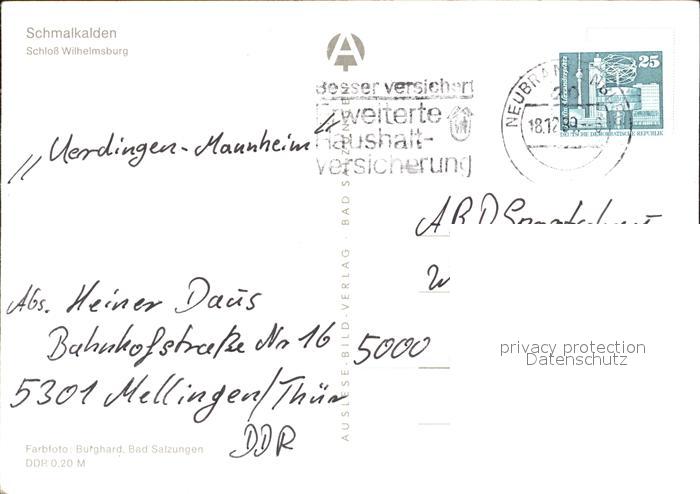 Schmalkalden
Schloß Wilhelmsburg
Besser versichert
Erweiterte
Haushalt-
versicherung
NEUBRANDENBURG
18.12.89
25
DEUTSCHE DEMOKRATISCHE REPUBLIK
„Uerdingen-Mannheim“
ARD
W
Abs. Heiner Daus
Bahnhofstraße Nr 16
5301 Mellingen/Thür
DDR
5000
privacy protection
Datenschutz
AUSLESE-BILD-VERLAG · BAD SALZUNGEN
Farbfoto: Burghard, Bad Salzungen
DDR 0,20 M